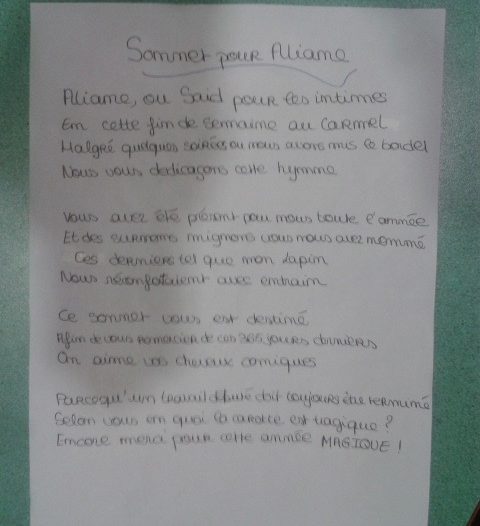 Sonnet pour Aliame
Aliame, ou Saïd pour les intimes
En cette fin de semaine au Carmel
Malgré quelques soirées ou nous avons mis le bordel
Nous vous dedicaçons cette hymne
Vous avez été présent pour nous toute l'année
Et des surnoms mignons vous nous avez nommé
Ces derniers tel que mon Lapin
Nous réconfortaient avec entrain
Ce sonnet vous est destiné
Afin de vous remercier de ces 365 jours derniers
On aime vos cheveux comiques
Parcequ'un travail débuté doit toujours être terminé
Selon vous en quoi la carotte est tragique ?
Encore merci pour cette année MAGIQUE !